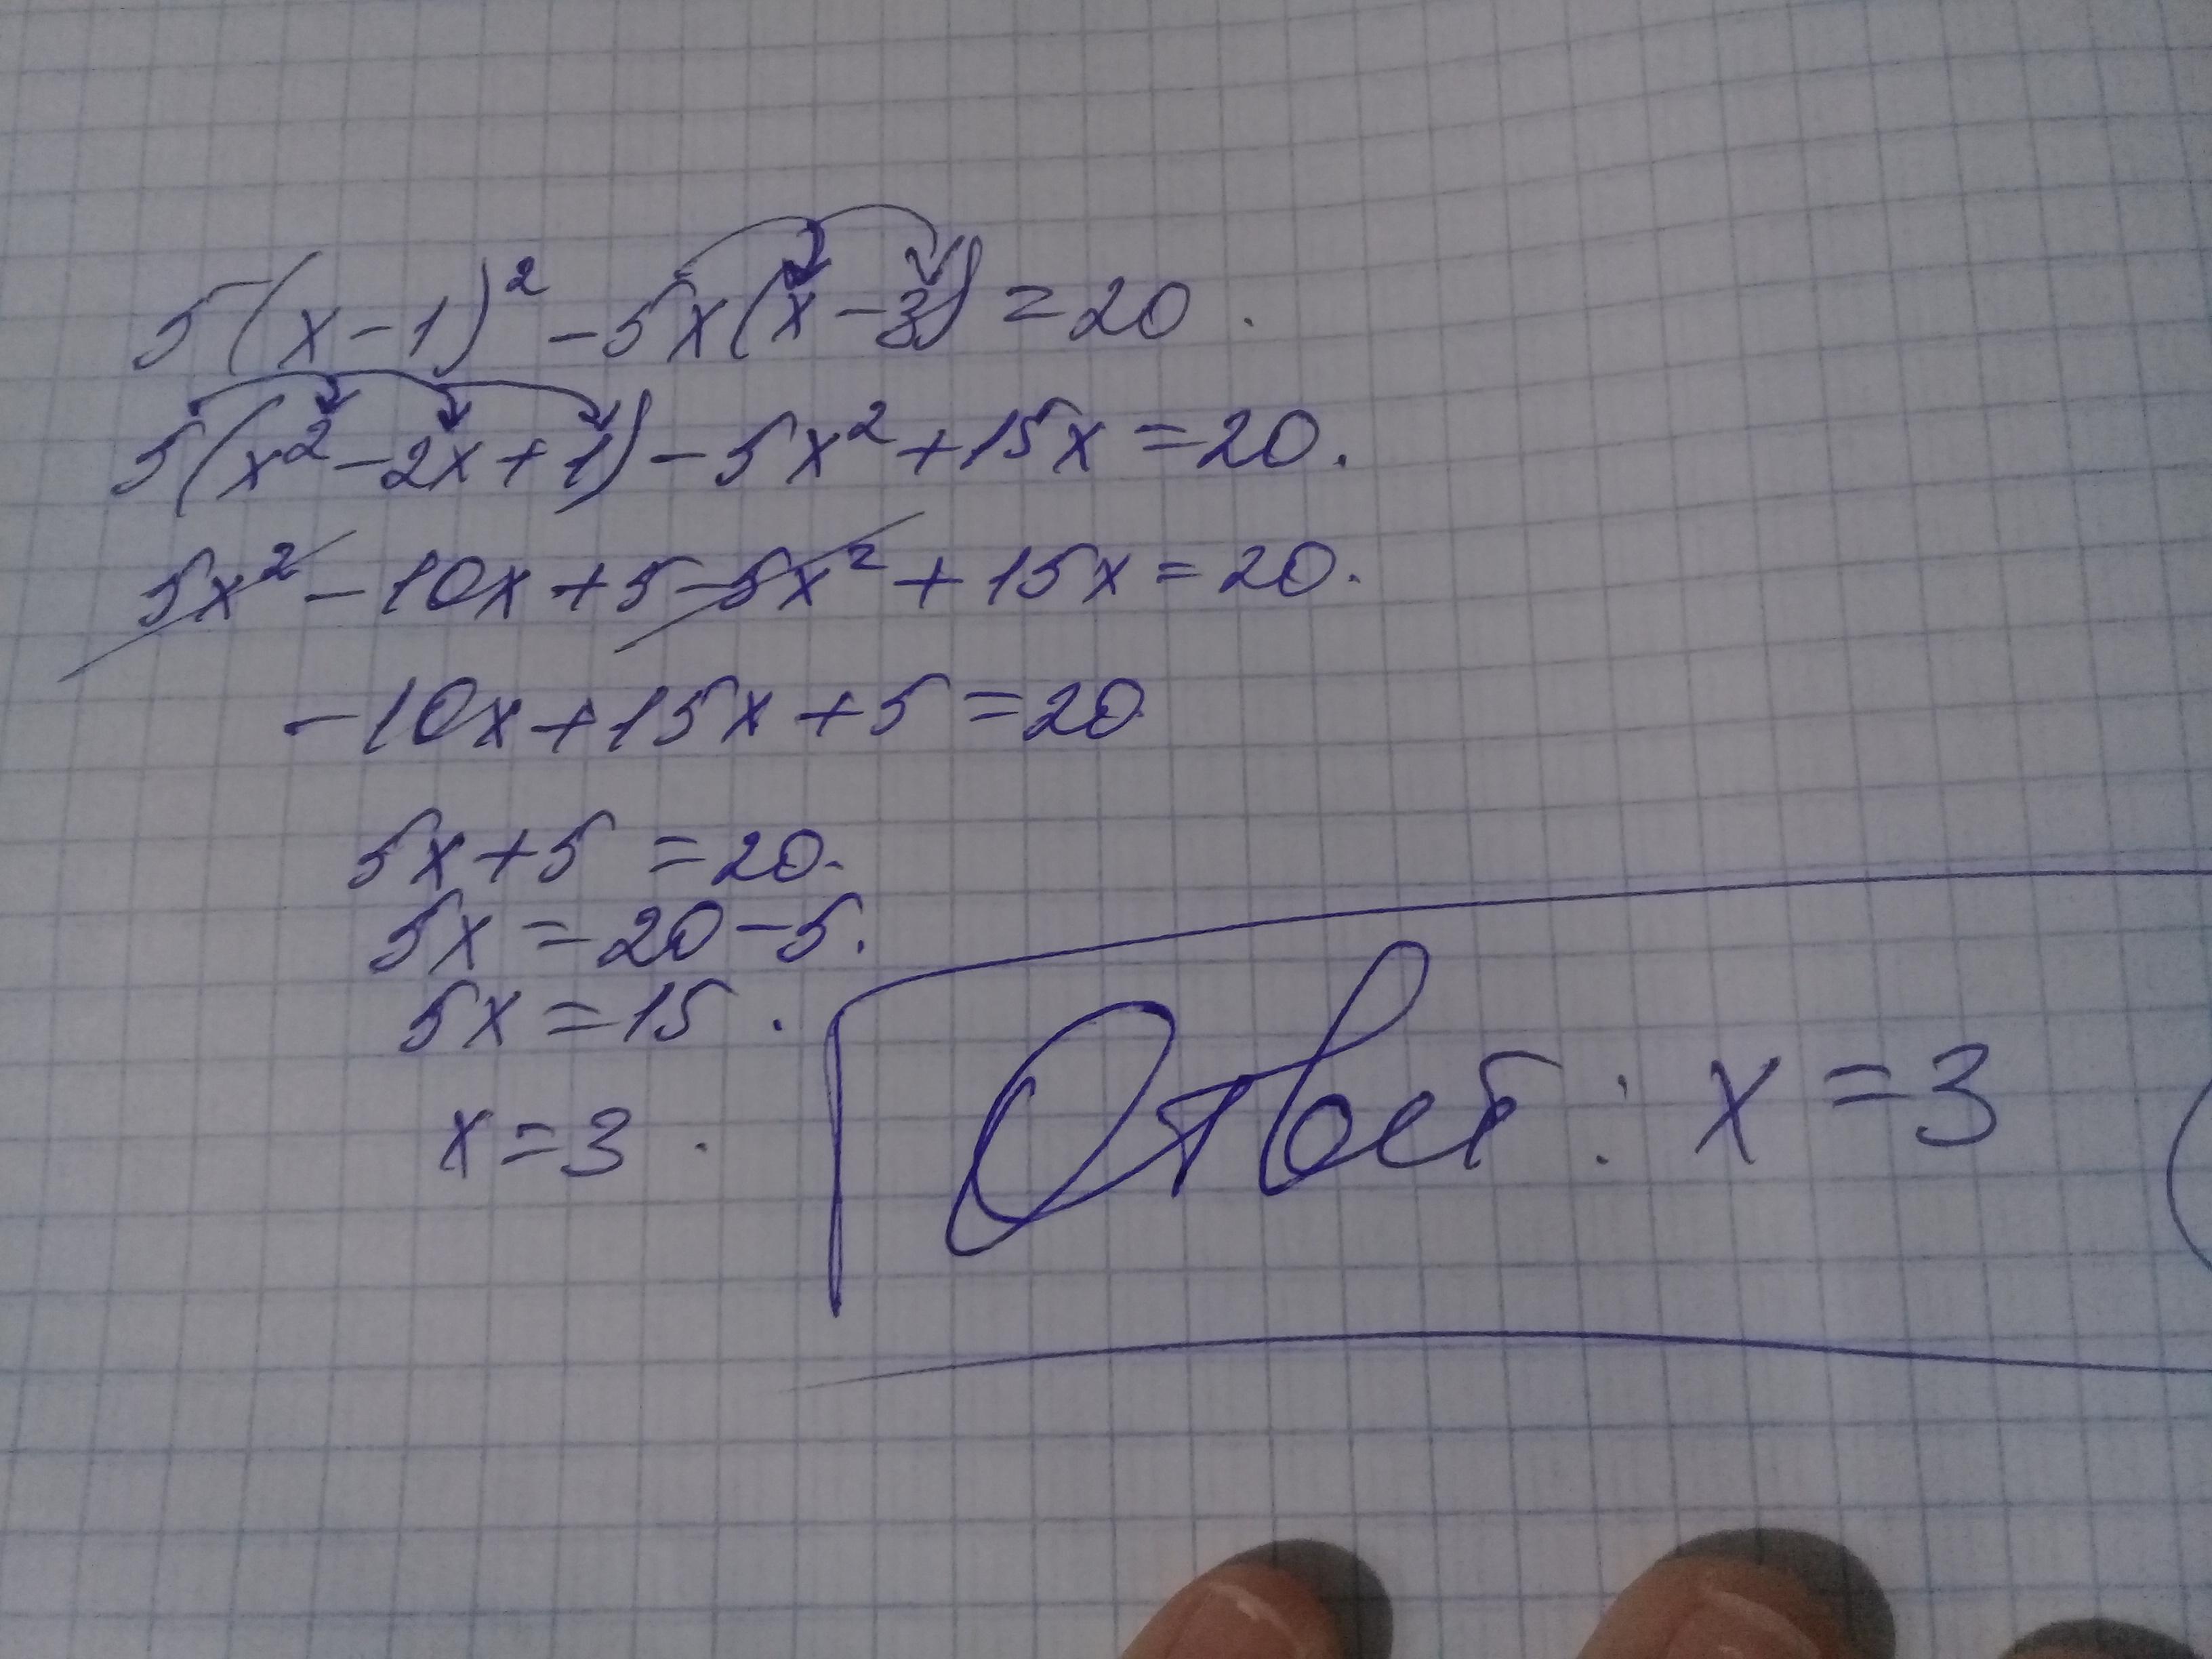 5(x-1)² -5x(x-3)=20.
5(x²-2x+1)-5x²+15x=20.
5x²-10x+5-5x²+15x=20.
-10x+15x+5=20
5x+5=20.
5x=20-5.
5x=15.
x=3.
Ответ: x=3